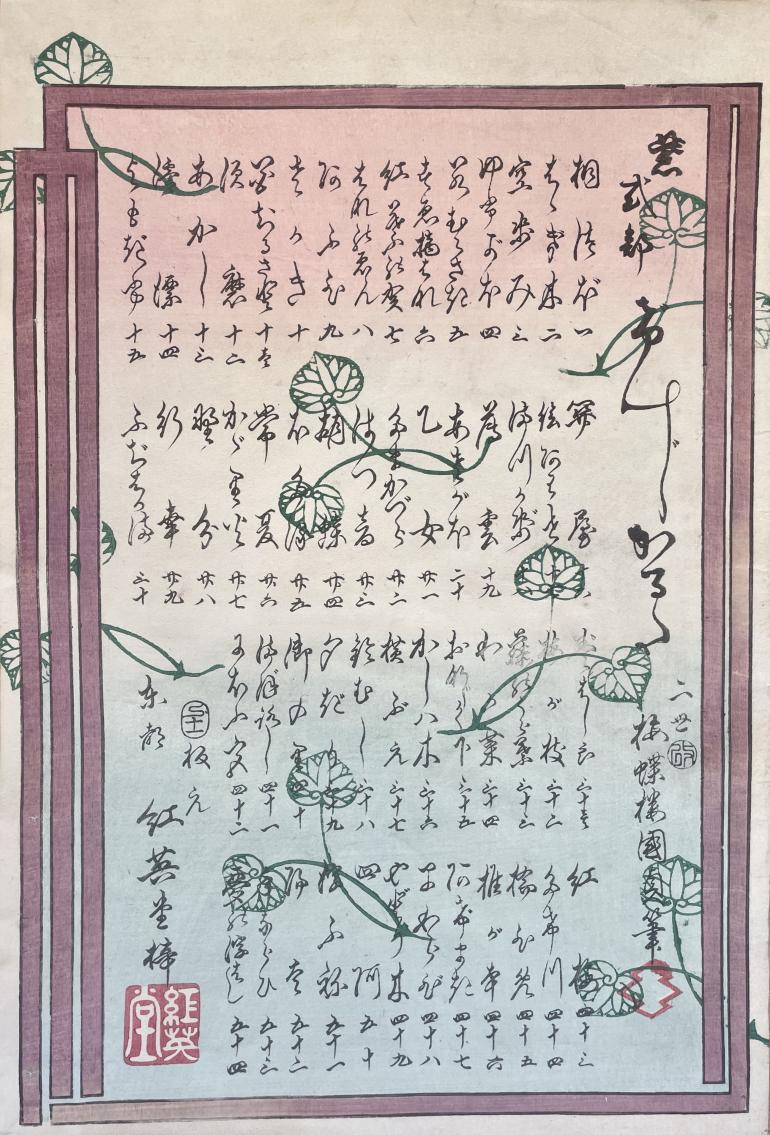 紫式部げんじかるた
二世
梅蝶楼國貞筆
桐つぼ 一
はゝき木 二
空せみ 三
ゆふがほ 四
若むらさき 五
すゑ摘はな 六
紅葉の賀 七
はなのゑん 八
あふひ 九
さかき 十
花ちるさと 十一
須磨 十二
あかし 十三
澪標 十四
よもぎふ 十五
關屋 十六
絵あはせ
松かぜ
薄雲 十九
あさがほ 二十
乙女 廿一
たまかづら 廿二
はつ音 廿三
胡蝶 廿四
ほたる 廿五
常夏 廿六
かゞり火 廿七
野分 廿八
行幸 廿九
ふぢばかま 三十
まきばしら 三十一
梅が枝 三十二
藤のうら葉 三十三
わか菜 三十四
おなじく下 三十五
かしハ木 三十六
横ぶえ 三十七
鈴むし 三十八
夕ぎり 三十九
御のり 四十
まぼろし 四十一
にほふ宮 四十二
紅梅 四十三
たけ川 四十四
橋ひめ 四十五
椎が本 四十六
あげまき 四十七
さわらび 四十八
やどり木 四十九
四阿 五十
浮ふね 五十一
五十二
手ならひ 五十三
夢の浮はし 五十四
板元
東都 紅英堂梓
紅英堂